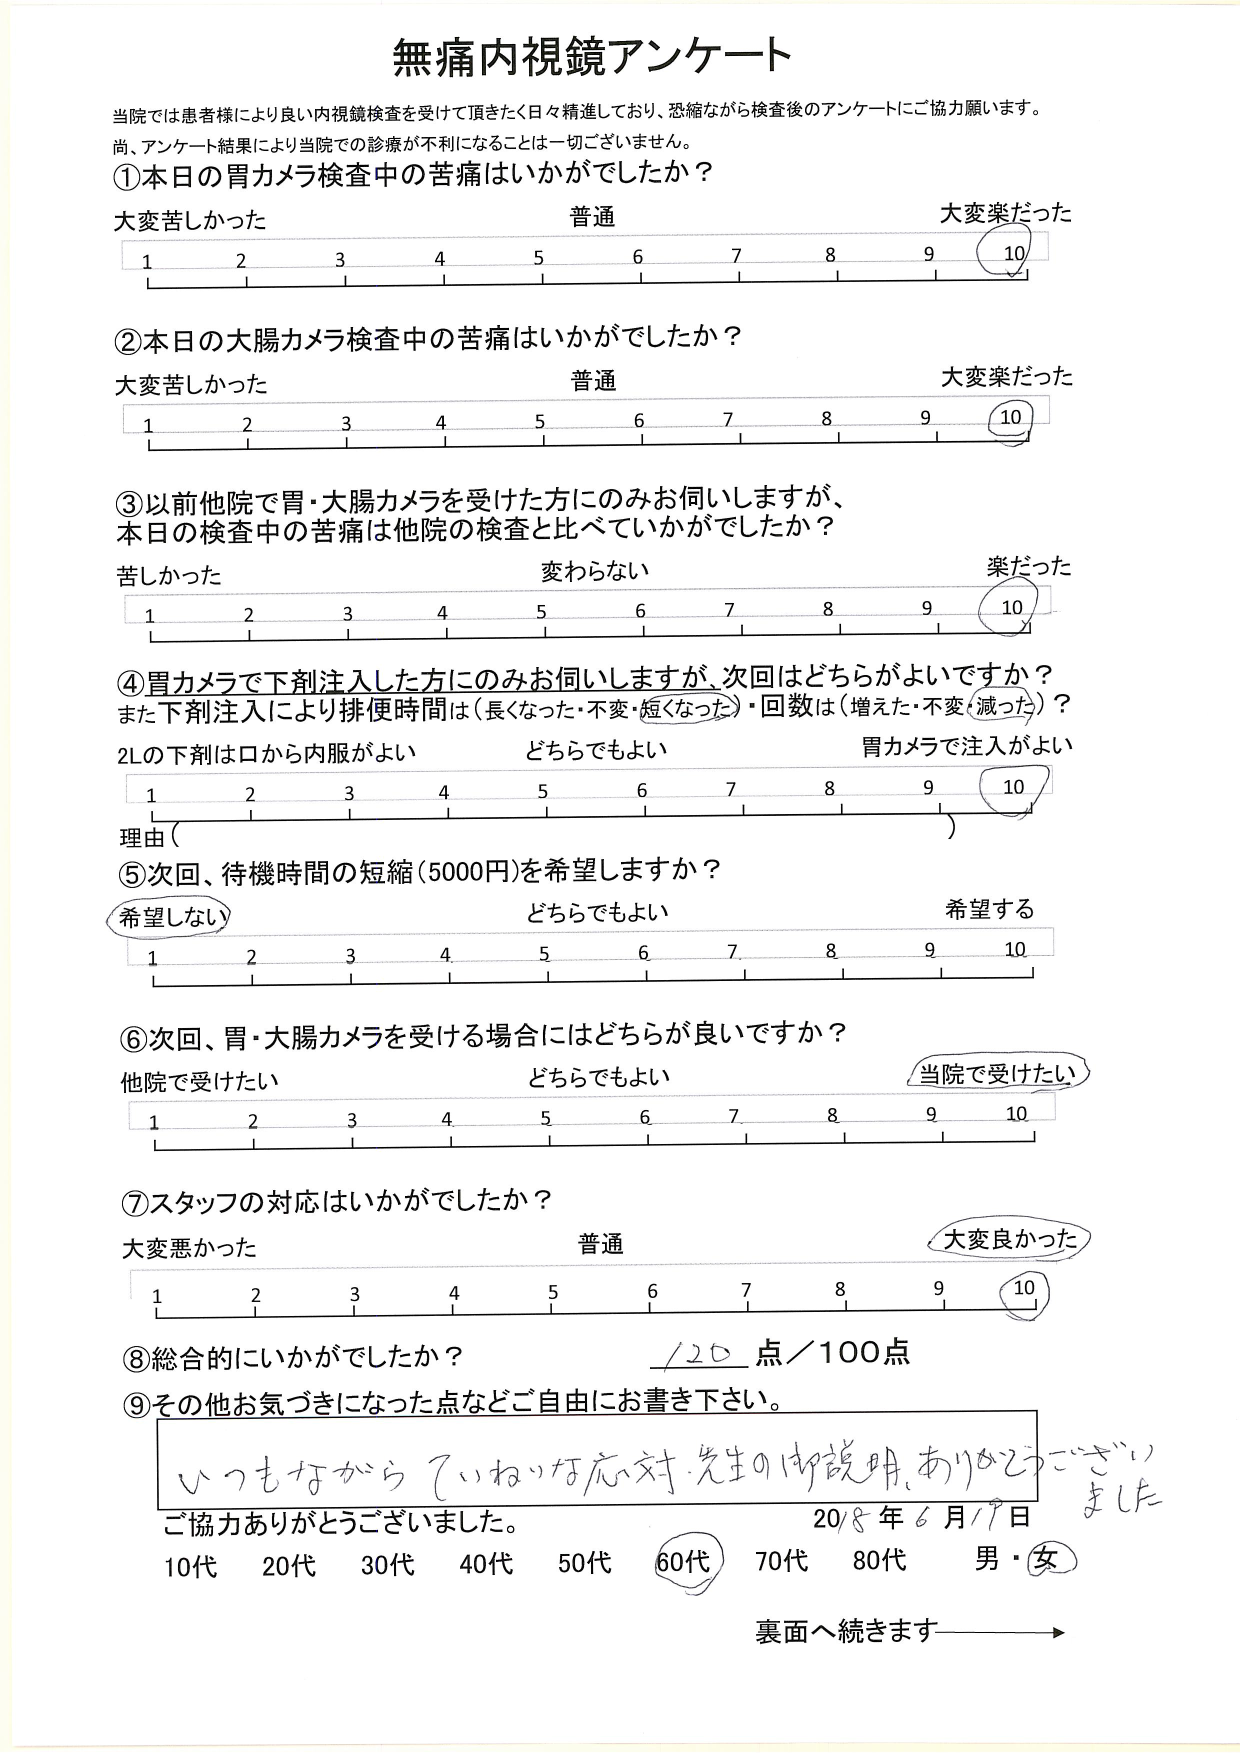 無痛内視鏡アンケート
当院では患者様により良い内視鏡検査を受けて頂きたく日々精進しており、恐縮ながら検査後のアンケートにご協力願います。
尚、アンケート結果により当院での診療が不利になることは一切ございません。
①本日の胃カメラ検査中の苦痛はいかがでしたか？
大変苦しかった 普通 大変楽だった
1 2 3 4 5 6 7 8 9 10
②本日の大腸カメラ検査中の苦痛はいかがでしたか？
大変苦しかった 普通 大変楽だった
1 2 3 4 5 6 7 8 9 10
③以前他院で胃・大腸カメラを受けた方にのみお伺いしますが、
本日の検査中の苦痛は他院の検査と比べていかがでしたか？
苦しかった 変わらない 楽だった
1 2 3 4 5 6 7 8 9 10
④胃カメラで下剤注入した方にのみお伺いしますが、次回はどちらがよいですか？
また下剤注入により排便時間は（長くなった・不変・短くなった）・回数は（増えた・不変・減った）？
2Lの下剤は口から内服がよい どちらでもよい 胃カメラで注入がよい
1 2 3 4 5 6 7 8 9 10
理由（ ）
⑤次回、待機時間の短縮（5000円）を希望しますか？
希望しない どちらでもよい 希望する
1 2 3 4 5 6 7 8 9 10
⑥次回、胃・大腸カメラを受ける場合にはどちらが良いですか？
他院で受けたい どちらでもよい 当院で受けたい
1 2 3 4 5 6 7 8 9 10
⑦スタッフの対応はいかがでしたか？
大変悪かった 普通 大変良かった
1 2 3 4 5 6 7 8 9 10
⑧総合的にいかがでしたか？ 120 点／100点
⑨その他お気づきになった点などご自由にお書き下さい。
いつもながら ていねいな応対、先生の御説明、ありがとうござい
ました
ご協力ありがとうございました。 2018年6月19日
10代 20代 30代 40代 50代 60代 70代 80代 男・女
裏面へ続きます